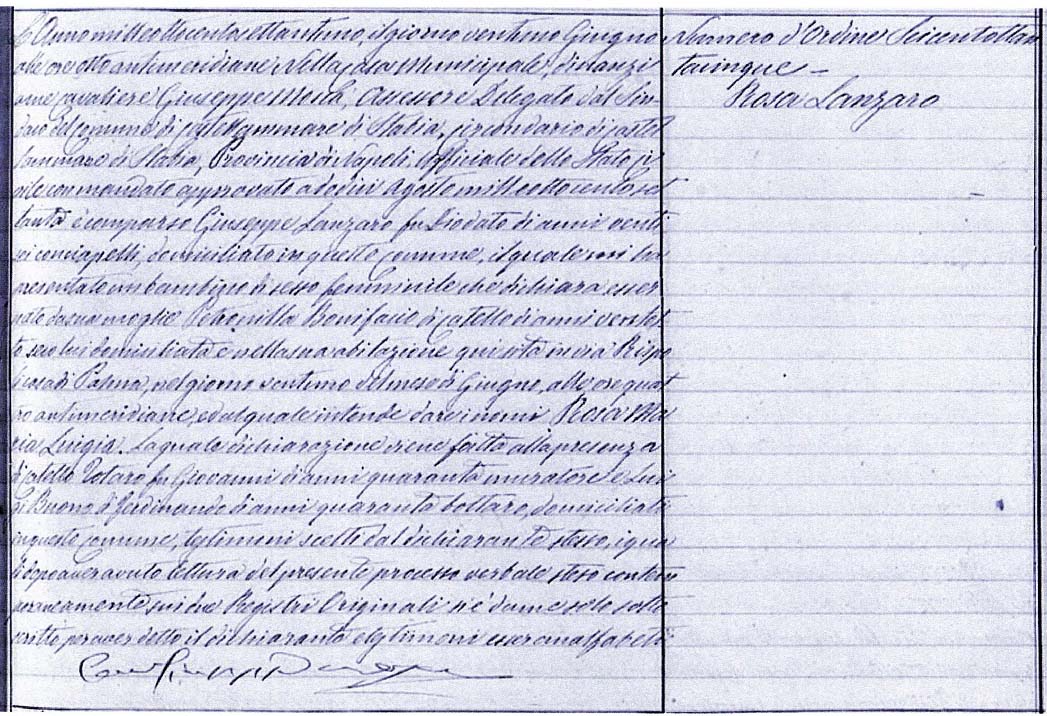 L'Anno mille ottocento settantuno, il giorno ventuno Giugno
alle ore otto antimeridiane Nella Casa Municipale, dinanzi
a me Cavaliere Giuseppe Assessore Delegato dal Sin
daco del Comune di Castellammare di Stabia, circondario di Castel
lammare di Stabia, Provincia di Napoli. Officiale dello Stato Ci
vile con mandato approvato a dodici Agosto mille ottocento set
tanta è comparso Giuseppe Lanzaro fu Diodato di anni venti
sei conciapelli, domiciliato in questo comune, il quale mi ha
presentato un bambino di sesso femminile che dichiara esser
nato da sua moglie Petronilla Bonifacio di Catello di anni ventot
to seco lui domiciliata e nella sua abitazione qui sita in via Rispo
li casa di nel giorno ventuno del mese di Giugno, alle ore quat
tro antimeridiane, ed al quale intende dare i nomi Rosa Ma
ria Luigia. La quale dichiarazione viene fatta alla presenza
di Catello Totaro fu Giovanni di anni quaranta muratore e Lui
gi Buono di Ferdinando di anni quaranta bottaro, domiciliati
in questo comune, testimoni scelti dal dichiarante stesso, i qua
li dopo aver avuto lettura del presente processo verbale steso contem
poraneamente sui due Registri Originali si è da me solo sotto
scritto per aver detto il dichiarante e testimoni esser analfabeti
Numero d'Ordine Seicentottan
tacinque –
Rosa Lanzaro